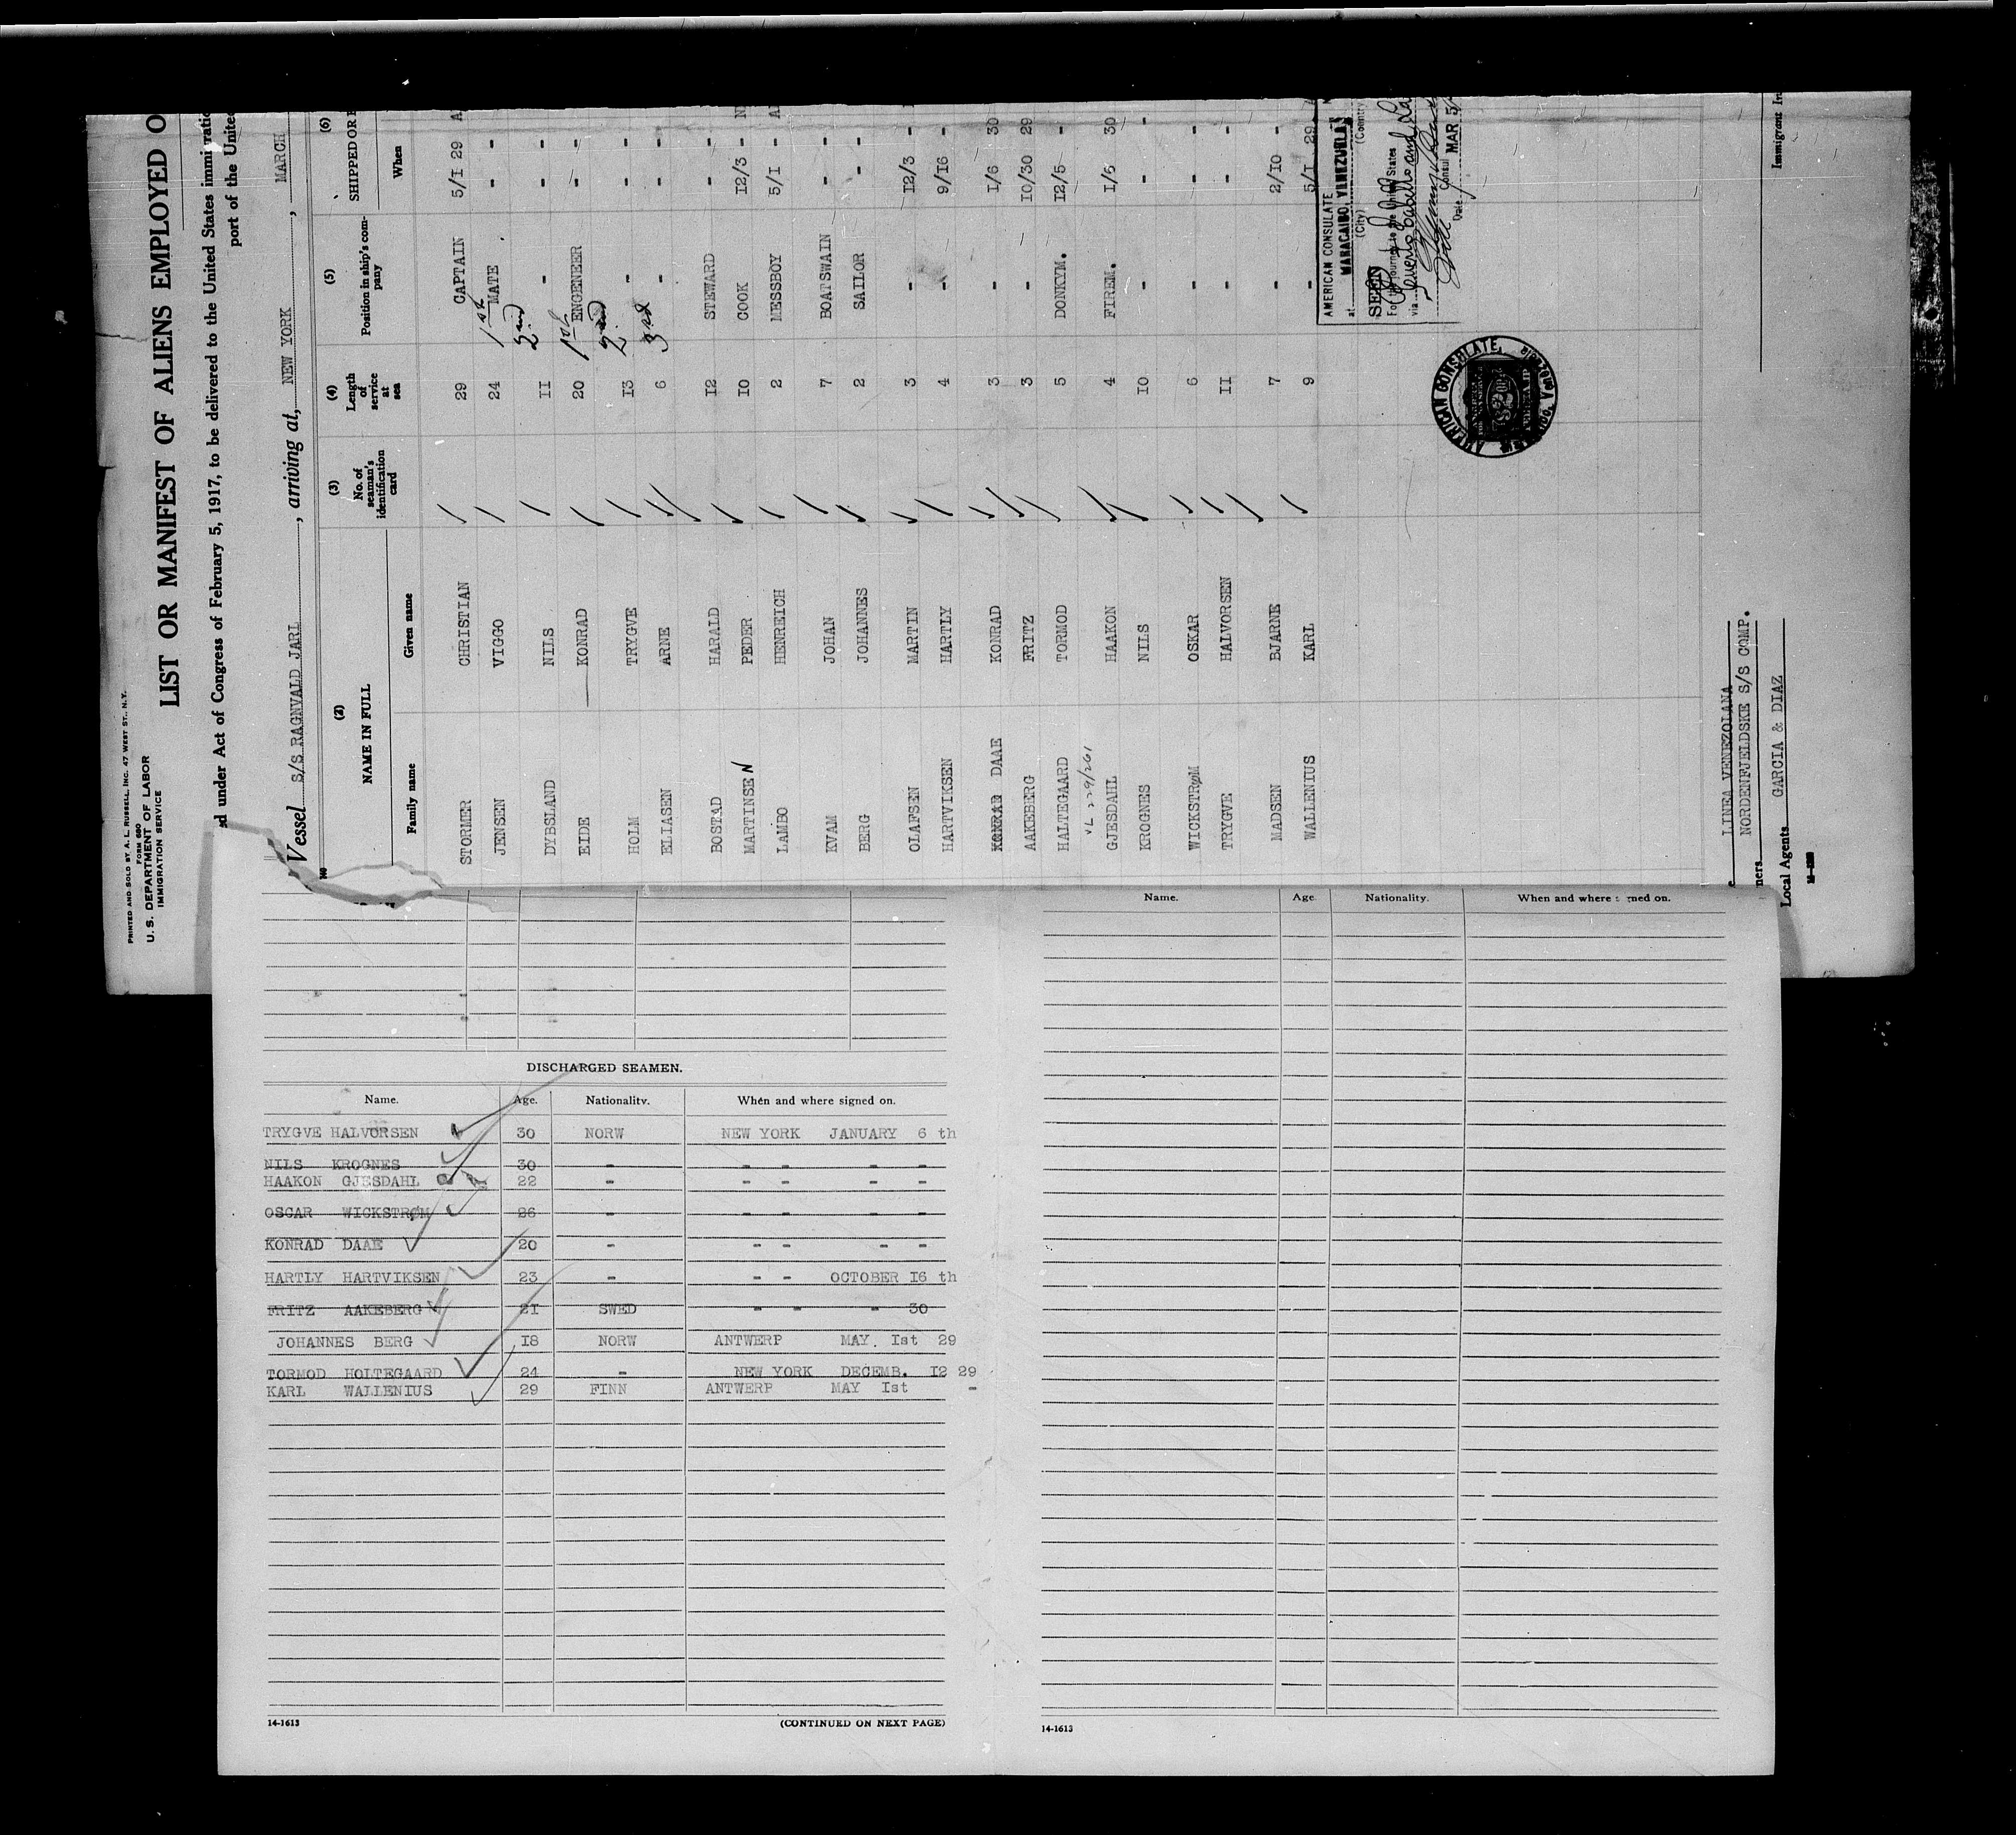 PRINTED AND SOLD BY A. L. RUSSELL, INC. 47 WEST ST., N.Y.
FORM 680
U. S. DEPARTMENT OF LABOR
IMMIGRATION SERVICE
LIST OR MANIFEST OF ALIENS EMPLOYED O
d under Act of Congress of February 5, 1917, to be delivered to the United States immigratio
port of the United
Vessel S/S RAGNVALD JARL, arriving at, NEW YORK, MARCH
(2) (3) (4) (5) (6)
NAME IN FULL No. of seaman's identification card Length of service at sea Position in ship's company SHIPPED OR
Family name Given name When
STORMER CHRISTIAN 29 CAPTAIN 5/I 29 A
JENSEN VIGGO 24 1st MATE - -
DYBSLAND NILS II 2nd - - -
EIDE KONRAD 20 1st ENGENEER - -
HOLM TRYGVE I3 2nd - - -
ELIASEN ARNE 6 3rd - - -
BOSTAD HARALD I2 STEWARD - -
MARTINSEN PEDER IO COOK I2/3 - N
LAMBO HENREICH 2 MESSBOY 5/I - A
KVAM JOHAN 7 BOATSWAIN - -
BERG JOHANNES 2 SAILOR - -
OLAFSEN MARTIN 3 - I2/3 -
HARTVIKSEN HARTLY 4 - 9/I6 -
KONRAD DAAE KONRAD 3 - I/6 30
AAKEBERG FRITZ 3 - IO/30 29
HALTEGAARD TORMOD 5 DONKYM. I2/5 -
VL 229/261
GJESDAHL HAAKON 4 FIREM. I/6 30
KROGNES NILS IO - - -
WICKSTRØM OSKAR 6 - - -
TRYGVE HALVORSEN II - - -
MADSEN BJARNE 7 - 2/IO -
WALLENIUS KARL 9 - 5/I 29 A
AMERICAN CONSULATE
at MARACAIBO, VENEZUELA
(City) (Country)
SEEN
For the journey to the United States
via Puerto Cabello and La
Consul
Date MAR 5
AMERICAN CONSULATE
LINEA VENEZOLANA
ners NORDENFJELDSKE S/S COMP.
Local Agents GARCIA & DIAZ
Immigrant In
Name. Age. Nationality. When and where signed on.
DISCHARGED SEAMEN.
Name. Age. Nationality. When and where signed on.
TRYGVE HALVORSEN 30 NORW NEW YORK JANUARY 6 th
NILS KROGNES 30 - - - - -
HAAKON GJESDAHL 22 - - - - -
OSCAR WICKSTRØM 26 - - - - -
KONRAD DAAE 20 - - - - -
HARTLY HARTVIKSEN 23 - - - OCTOBER I6 th
FRITZ AAKEBERG 2I SWED - - - 30
JOHANNES BERG I8 NORW ANTWERP MAY. Ist 29
TORMOD HOLTEGAARD 24 - NEW YORK DECEMB. I2 29
KARL WALLENIUS 29 FINN ANTWERP MAY Ist -
14-1613 (CONTINUED ON NEXT PAGE)
14-1613